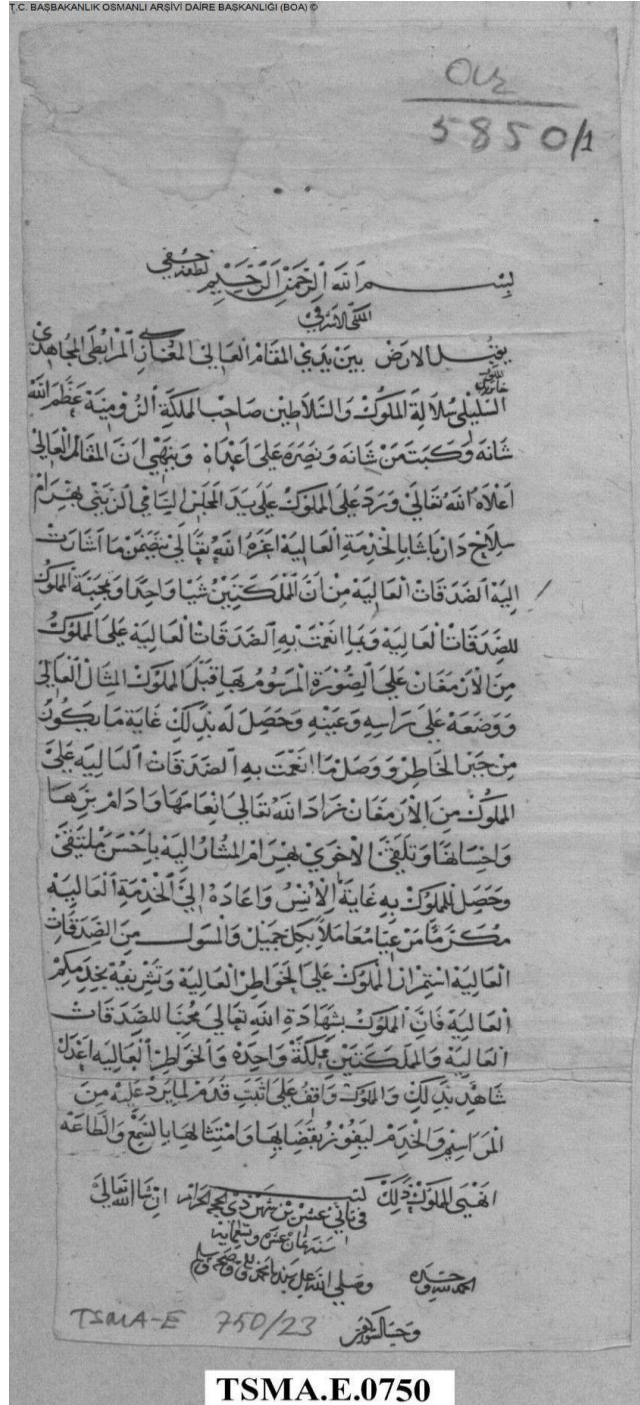 T.C. BAŞBAKANLIK OSMANLI ARŞİVİ DAİRE BAŞKANLIĞI (BOA) ©
5850/1
بسم الله الرحمن الرحيم
الملكي الاشرفي
يقبل الارض بين يدي المقام العالي المغازي المرابطي المجاهدي
السليمي سلالة الملوك والسلاطين صاحب المملكة الرومية عظم الله
شانه وكبت من شانه ونصره على اعداه وينهي ان المقام العالي
اعلاه الله تعالى ورد على المملوك على يد المجلس السامي الزيني بهرام
سلاح دار باشا بالخدمة العالية اعزه الله تعالى يتضمن ما اشارت
اليه الصدقات العالية من ان المملكتين شيا واحدا ومحبة المملوك
للصدقات العالية وبما انعمت به الصدقات العالية على المملوك
من الارمغان على الصورة المرسوم بها قبل المملوك المثال العالي
ووضعه على راسه وعينه وحصل له بذلك غاية ما يكون
من جبر الخاطر ووصل ما انعمت به الصدقات العالية على
المملوك من الارمغان زاد الله تعالى انعامها وادام برها
واحسانها وتلقى الاخوي بهرام المشار اليه باحسن ملتقى
وحصل للمملوك به غاية الانس واعاده الى الخدمة العالية
مكرما مرعيا معاملا بكل جميل والمسول من الصدقات
العالية استمرار المملوك على الخواطر العالية وتشريفه بخدمكم
العالية فان المملوك بشهادة الله تعالى محبا للصدقات
العالية والمملكتين مملكة واحدة والخواطر العالية اعدل
شاهد بذلك والمملوك واقف على اثبت قدم لما يرد عليه من
المراسيم والخدم ليفوز بقضايها وامتثالها بالسمع والطاعه
انهى المملوك ذلك كتب في ثاني عشرين شهر ذي الحجة الحرام ان شا الله تعالى
سنة ثمان عشرة وتسعمايه
الحمد لله وحده وصلى الله على سيدنا محمد واله وصحبه وسلم
TSMA-E 750/23
TSMA.E.0750